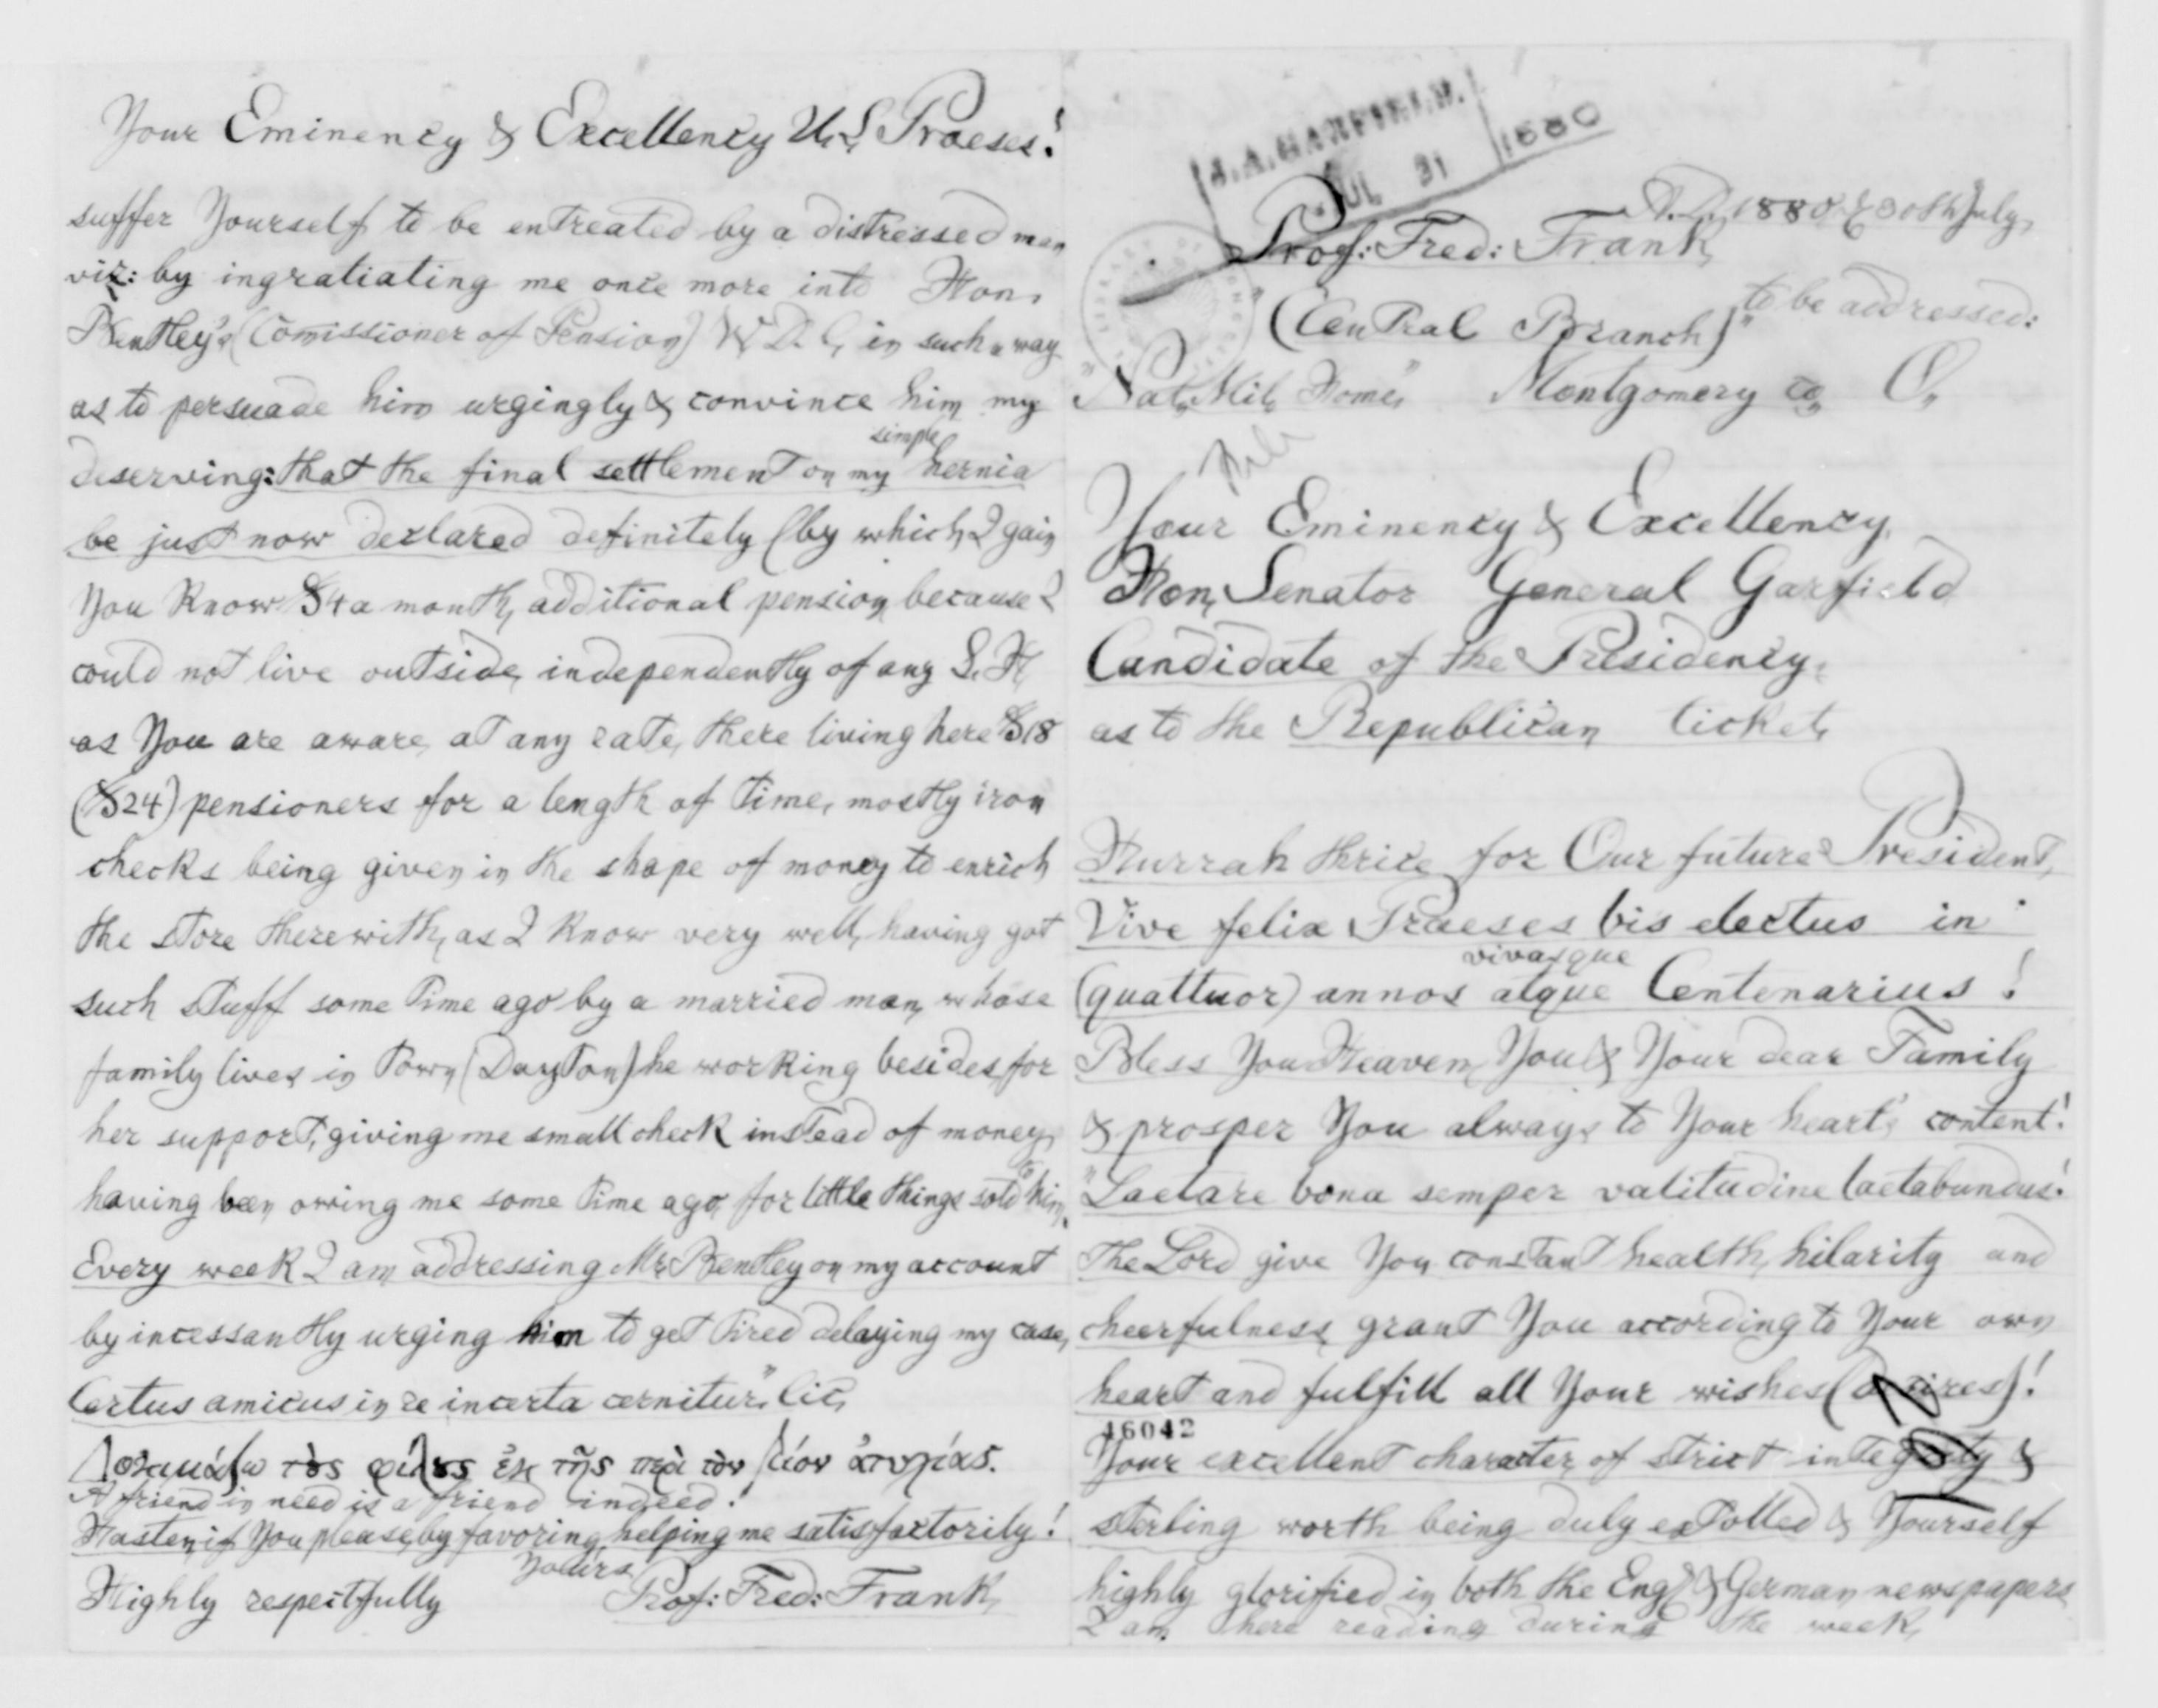 J. A. GARFIELD.
JUL 31 1880
A.D. 1880 30th July,
Prof: Fred: Frank,
to be addressed:
(Central Branch)"
"Nat. Mil. Home," Montgomery co, O,
Your Eminency & Excellency,
Hon, Senator General Garfield
Candidate of the Presidency,
as to the Republican ticket,
Hurrah thrice for Our future President,
Vive felix Praeses bis electus in
vivasque
(quattuor) annos atque Centenarius!
Bless You Heaven, You & Your dear Family
& prosper You always to Your heart's content!
"Laetare bona semper valitudine laetabundus!
The Lord give You constant health, hilarity and
cheerfulness grant You according to Your own
heart and fulfill all Your wishes (desires)!
16042
Your excellent character of strict integrity &
sterling worth being duly extolled & Yourself
highly glorified in both the Engl & German newspapers
I am here reading during the week,
Your Eminency & Excellency U.S. Praeses!
suffer Yourself to be entreated by a distressed man
viz: by ingratiating me once more into Hon.
Bentley's (Comissioner of Pension) W. D. C, in such a way
as to persuade him urgingly & convince him my
simple
deserving: that the final settlement on my hernia
be just now declared definitely (by which I gain
You know $4 a month, additional pension, because I
could not live outside, independently of any S. H,
as You are aware, at any rate, there living here $18
($24) pensioners for a length of time, mostly iron
checks being given in the shape of money to enrich
the store therewith, as I know very well, having got
such stuff some time ago by a married man, whose
family lives in Town, (Dayton) he working besides, for
her support, giving me small check instead of money,
having been owing me some time ago, for little things sold to him,
Every week I am addressing Mr. Bentley on my account
by incessantly urging him to get tired delaying my case,
Certus amicus in re incerta cernitur," Cic,
Δοκιμάζω τοὺς φίλους ἐκ τῆς περὶ τὸν βίον ἀτυχίας.
A friend in need is a friend indeed!
Hasten, if You please, by favoring, helping me satisfactorily!
Yours
Highly respectfully Prof: Fred: Frank,